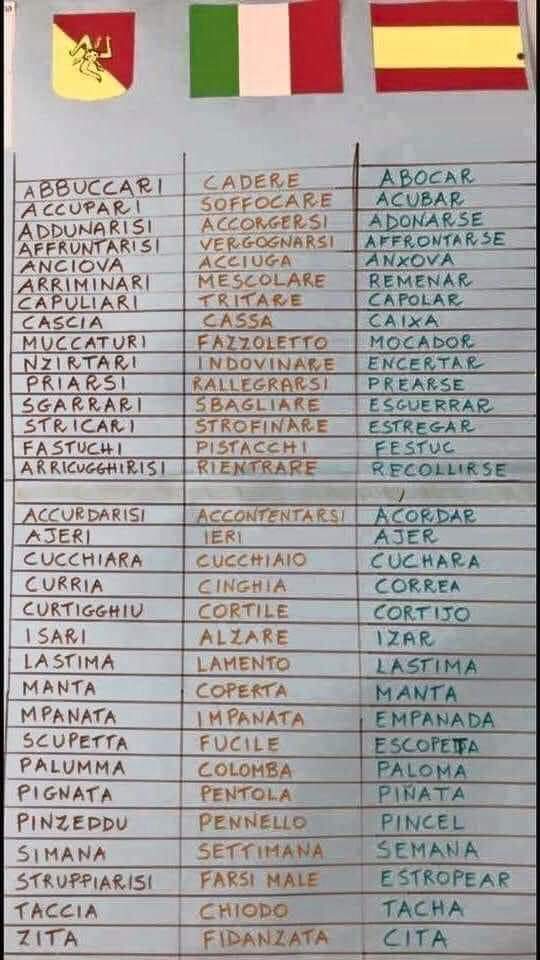 ABBUCCARI CADERE ABOCAR
ACCUPARI SOFFOCARE ACUBAR
ADDUNARISI ACCORGERSI ADONARSE
AFFRUNTARISI VERGOGNARSI AFFRONTARSE
ANCIOVA ACCIUGA ANXOVA
ARRIMINARI MESCOLARE REMENAR
CAPULIARI TRITARE CAPOLAR
CASCIA CASSA CAIXA
MUCCATURI FAZZOLETTO MOCADOR
NZIRTARI INDOVINARE ENCERTAR
PRIARSI RALLEGRARSI PREARSE
SGARRARI SBAGLIARE ESGUERRAR
STRICARI STROFINARE ESTREGAR
FASTUCHI PISTACCHI FESTUC
ARRICUGGHIRISI RIENTRARE RECOLLIRSE
ACCURDARISI ACCONTENTARSI ACORDAR
AJERI IERI AJER
CUCCHIARA CUCCHIAIO CUCHARA
CURRIA CINGHIA CORREA
CURTIGGHIU CORTILE CORTIJO
ISARI ALZARE IZAR
LASTIMA LAMENTO LASTIMA
MANTA COPERTA MANTA
MPANATA IMPANATA EMPANADA
SCUPETTA FUCILE ESCOPETTA
PALUMMA COLOMBA PALOMA
PIGNATA PENTOLA PIÑATA
PINZEDDU PENNELLO PINCEL
SIMANA SETTIMANA SEMANA
STRUPPIARISI FARSI MALE ESTROPEAR
TACCIA CHIODO TACHA
ZITA FIDANZATA CITA